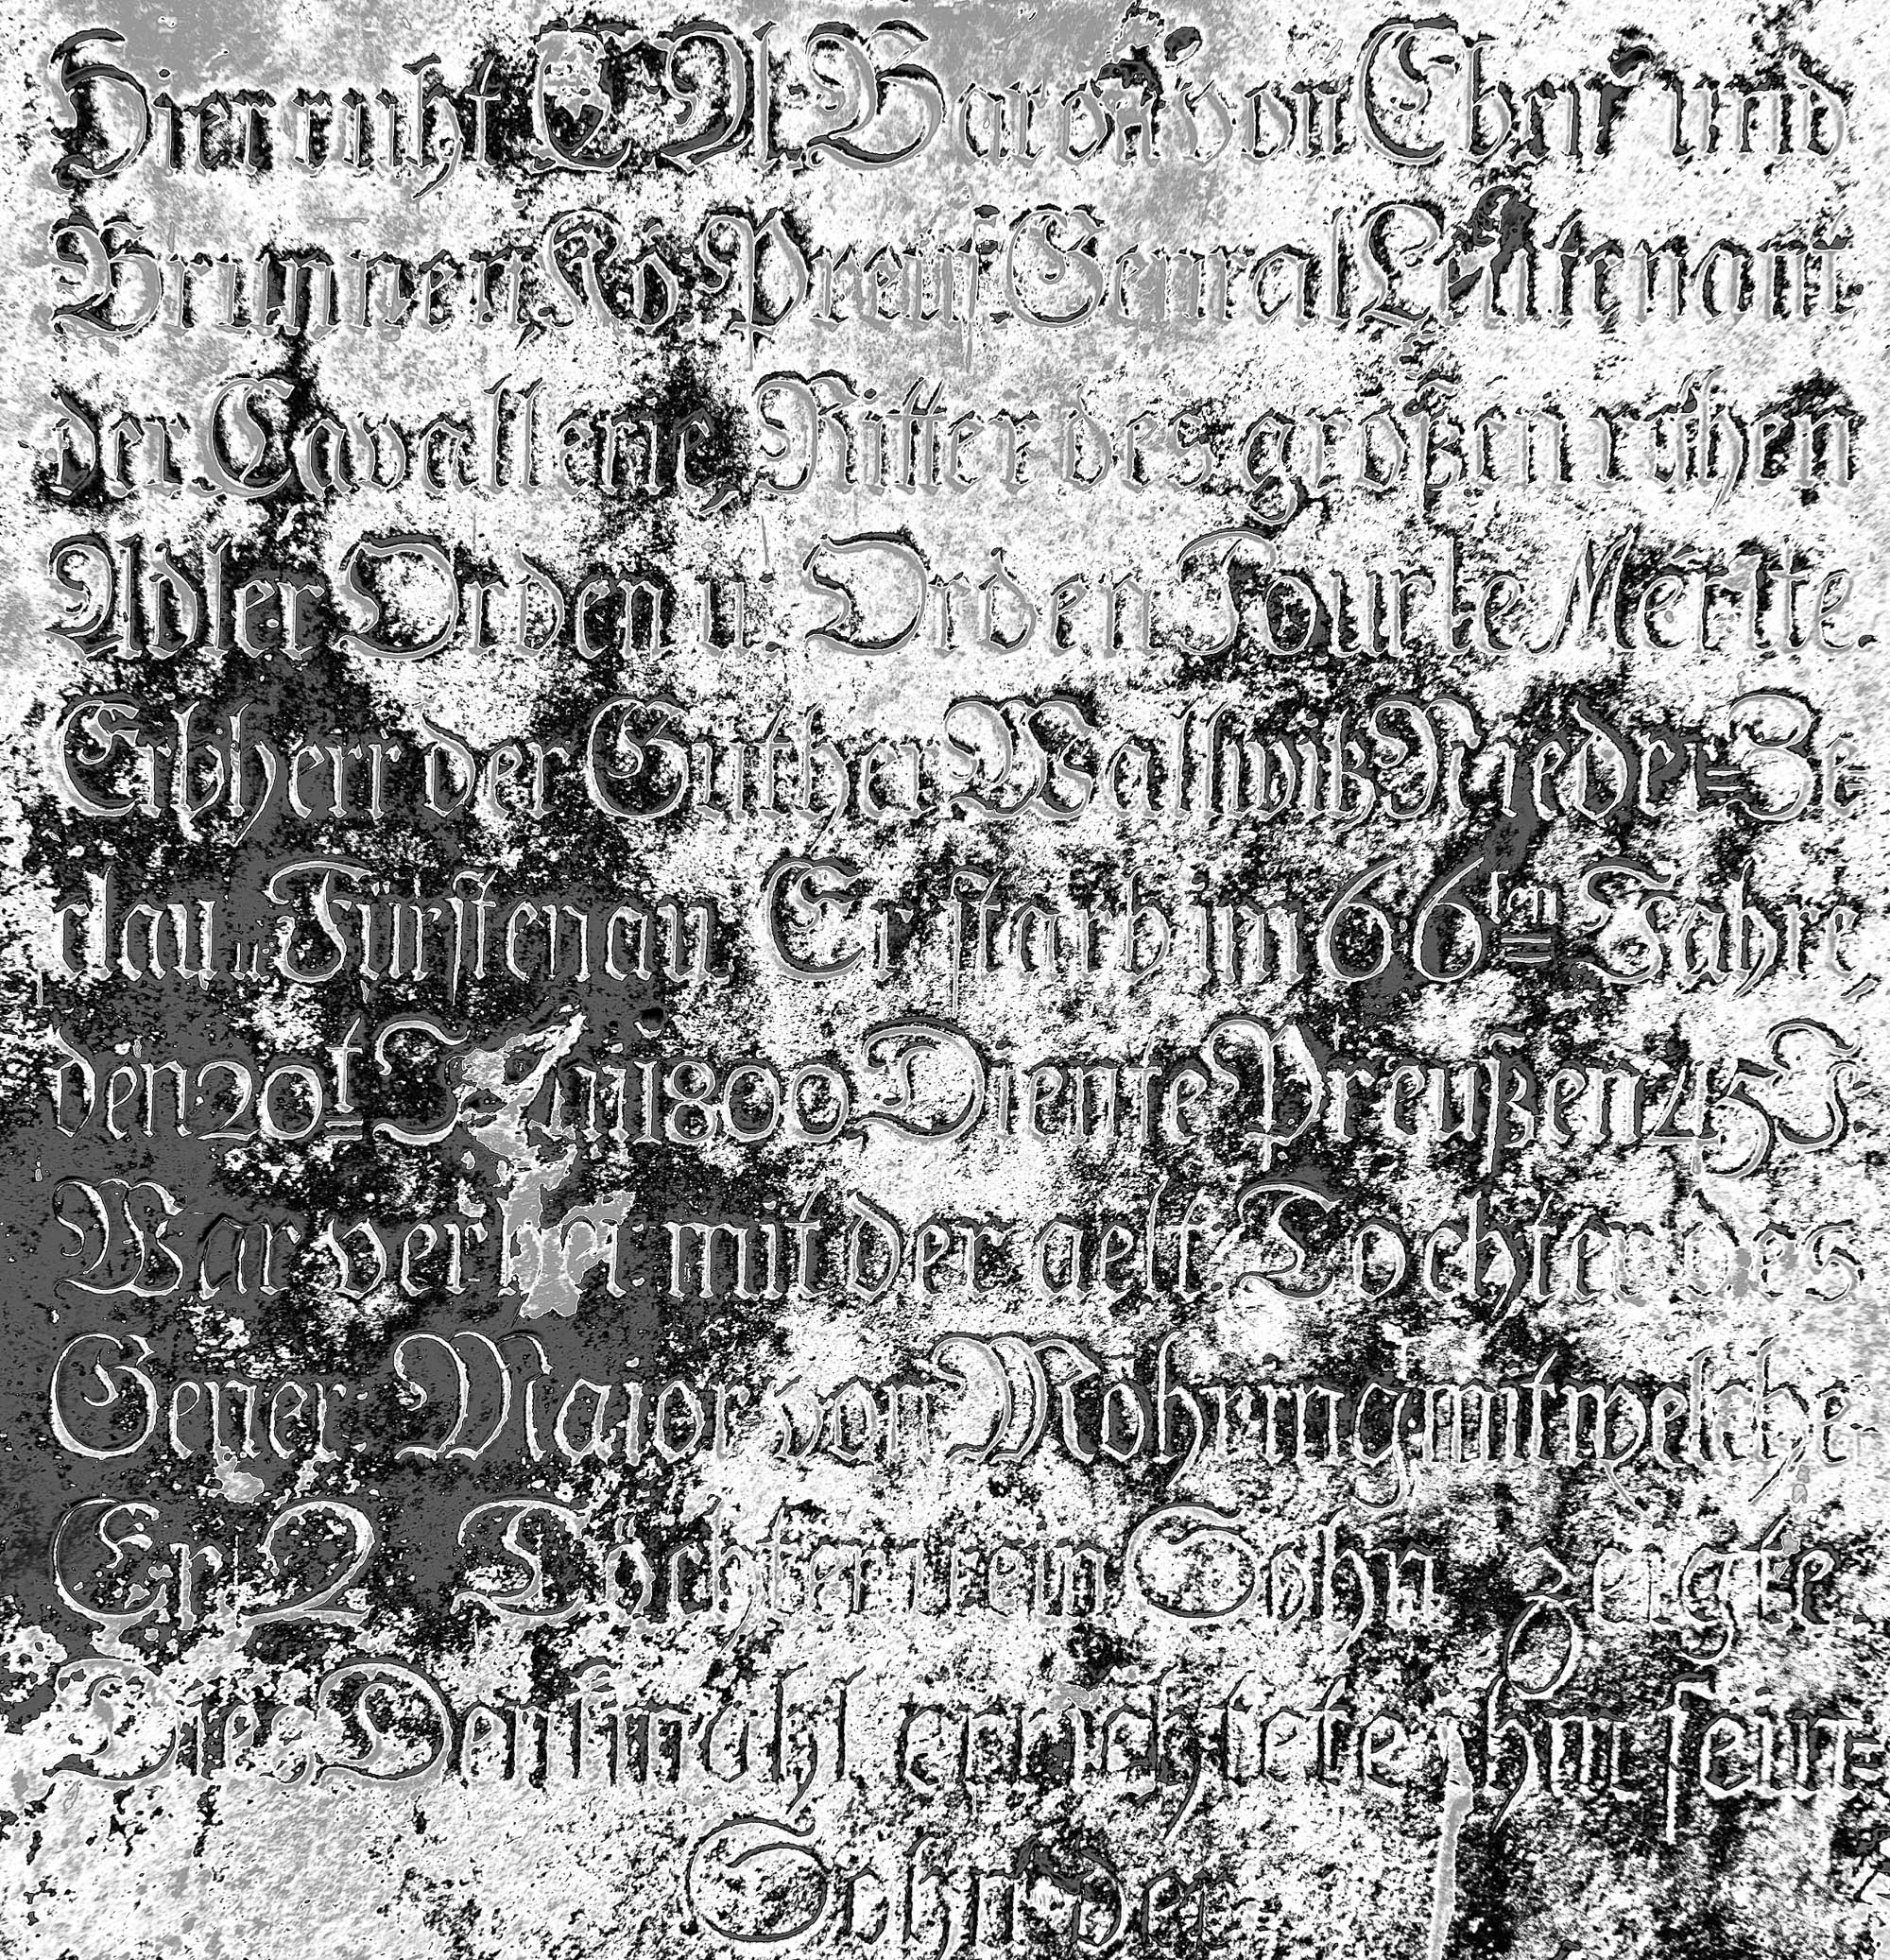 Hier ruht C. A. Baron von Eben und
Brunnen Kö. Preuſ. Genral Leutenant
der Cavallerie, Ritter des großen rothen
Adler Orden u: Orden Pour le Merite.
Erbherr der Guther Wallwitz Nieder=Ze
clau u: Fürſtenau. Er ſtarb im 66ſten Jahre,
den 20t 1800 Diente Preußen 45 J
War verhei mit der aelt: Tochter des
Gener: Maior von Möhring mit welche
Er 2 Töchter u ein Sohn zeigte
Dies Denkmahl errichtete ihm ſein
Sohn der